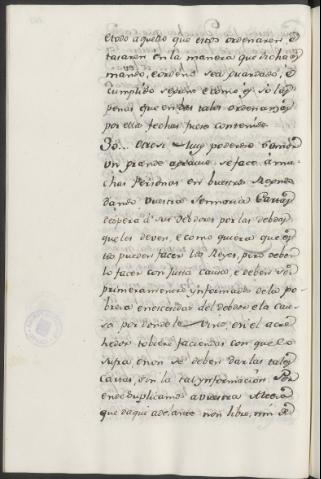 e todo aquello que estos ordenaren e
tasaren en la manera que dicha es
mando, e ordeno sea guardado, e
cumplido segun e como, e so las
penas que en las tales ordenanzas
por ellos fechas fuere contenido
30.. Otrosi Muy poderoso Señor
un grande agravio se face a mu
chas Personas en vuestros Reynos
dando Vuestra Sennoria Cartas
espera a sus debdores por las debdas
que les deven, e como quiera que esto
lo pueden facer los Reyes, pero deben
lo facer con justa causa, e deben ser
primeramente informados de la po
breza e necesidad del debdor e la cau
sa por donde le vino, e si el acre
hedor tobiere facienda con que lo
sufra e non se deben dar las tales
cartas, sin la tal ynformacion. Por
ende suplicamos a vuestra Alteza
que de aqui adelante non libre, nin